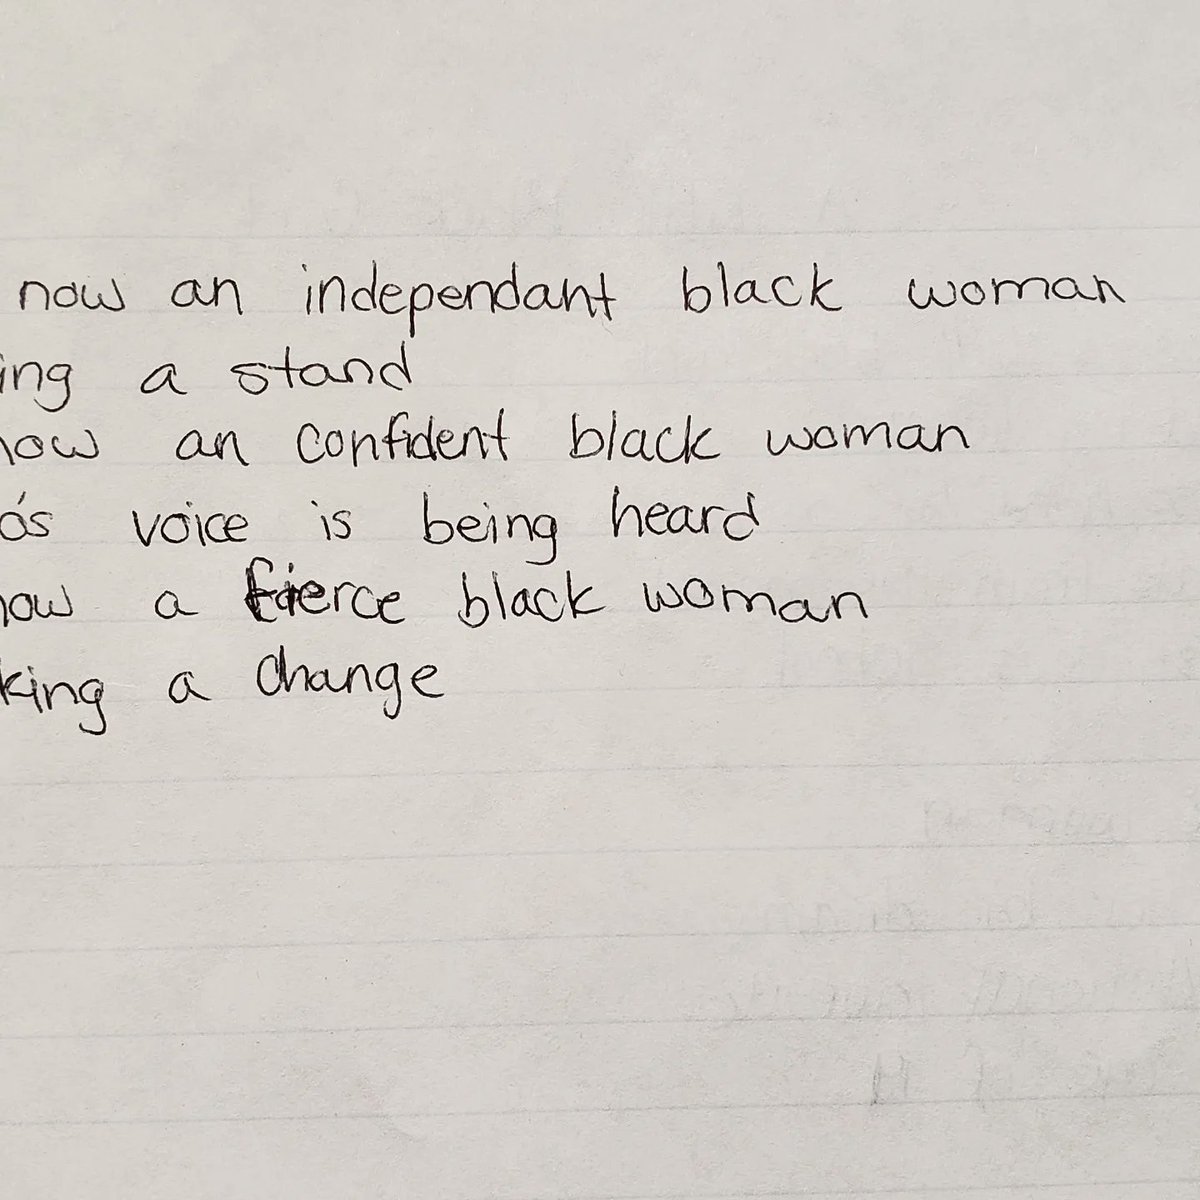 now an independant black woman
ing a stand
now an confident black woman
o's voice is being heard
now a fierce black woman
king a change